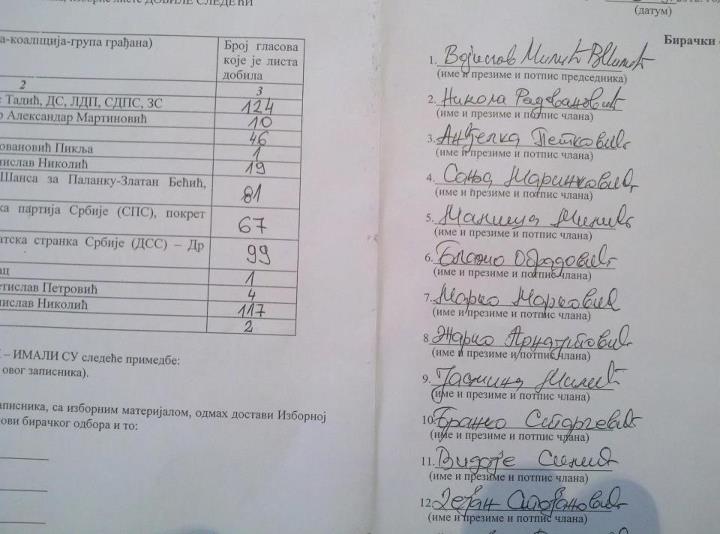 изборне листе ДОБИЛЕ СЛЕДЕЋИ
а-коалиција-група грађана)
Број гласова
које је листа
добила
2
3
Тадић, ДС, ЛДП, СДПС, ЗС
124
р Александар Мартиновић
10
46
овановић Пикља
1
нислав Николић
19
Шанса за Паланку-Златан Бећић,
81
ка партија Србије (СПС), покрет
67
атска странка Србије (ДСС) – Др
99
ац
1
етислав Петровић
4
нислав Николић
117
2
– ИМАЛИ СУ следеће примедбе:
овог записника).
аписника, са изборним материјалом, одмах достави Изборној
нови бирачког одбора и то:
(датум)
Бирачки
1. Војислав Милић ВМилић
(име и презиме и потпис председника)
2. Никола Радовановић
(име и презиме и потпис члана)
3. Анђелка Петковић
(име и презиме и потпис члана)
4. Сања Маринковић
(име и презиме и потпис члана)
5. Малиша Милић
(име и презиме и потпис члана)
6. Благио Обрадовић
(име и презиме и потпис члана)
7. Марко Марковић
(име и презиме и потпис члана)
8. Жарко
(име и презиме и потпис члана)
9. Јасмина Милић
(име и презиме и потпис члана)
10. Бранко
(име и презиме и потпис члана)
11. Видоје Симић
(име и презиме и потпис члана)
12. Дејан Стојановић
(име и презиме и потпис члана)